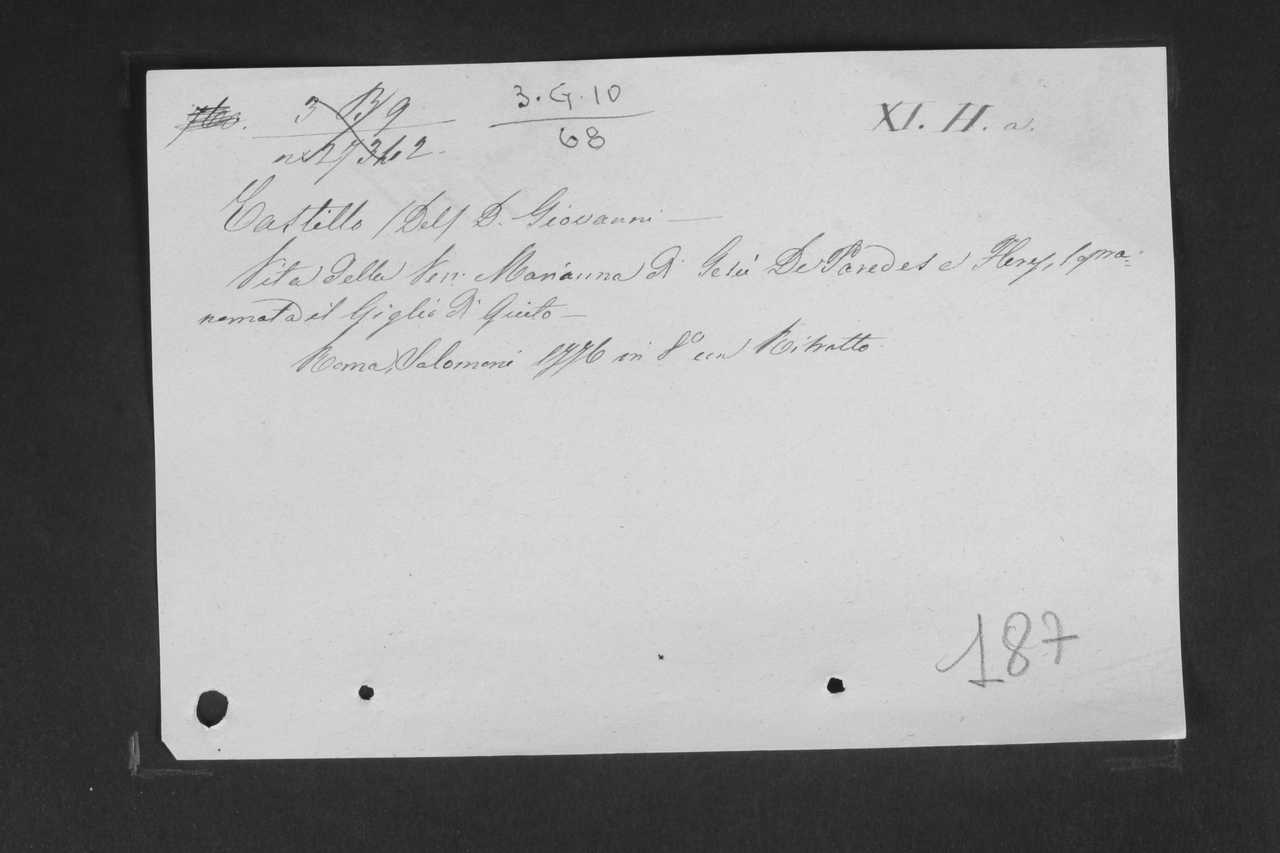 3 B 9
3.G.10
68
XI. H. a.
Castillo (Del) D. Giovanni —
Vita della Ven: Marianna di Gesù De Paredes e Flores, sopra=
nomata il Giglio di Quito —
Roma, Salomoni 1776 in 8º con Ritratto.
187